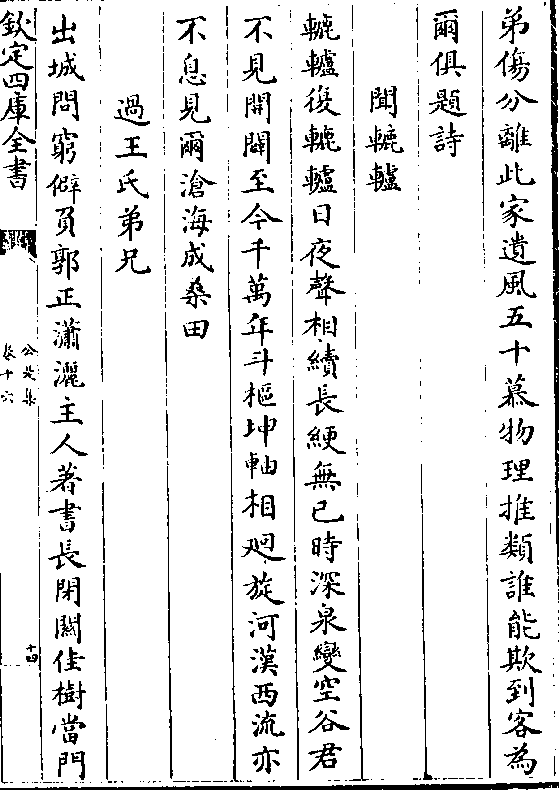 弟傷分離此家遺風五十慕物理推類誰能欺到客為
爾俱題詩
聞轆轤
轆轤復轆轤日夜聲相續長綆無已時深泉變空谷君
不見開闢至今千萬年斗樞坤軸相廻旋河漢西流亦
不息見爾滄海成桑田
過王氏弟兄
出城問窮僻負郭正瀟灑主人著書長閉關佳樹當門
欽定四庫全書
公是集
卷十六
十四